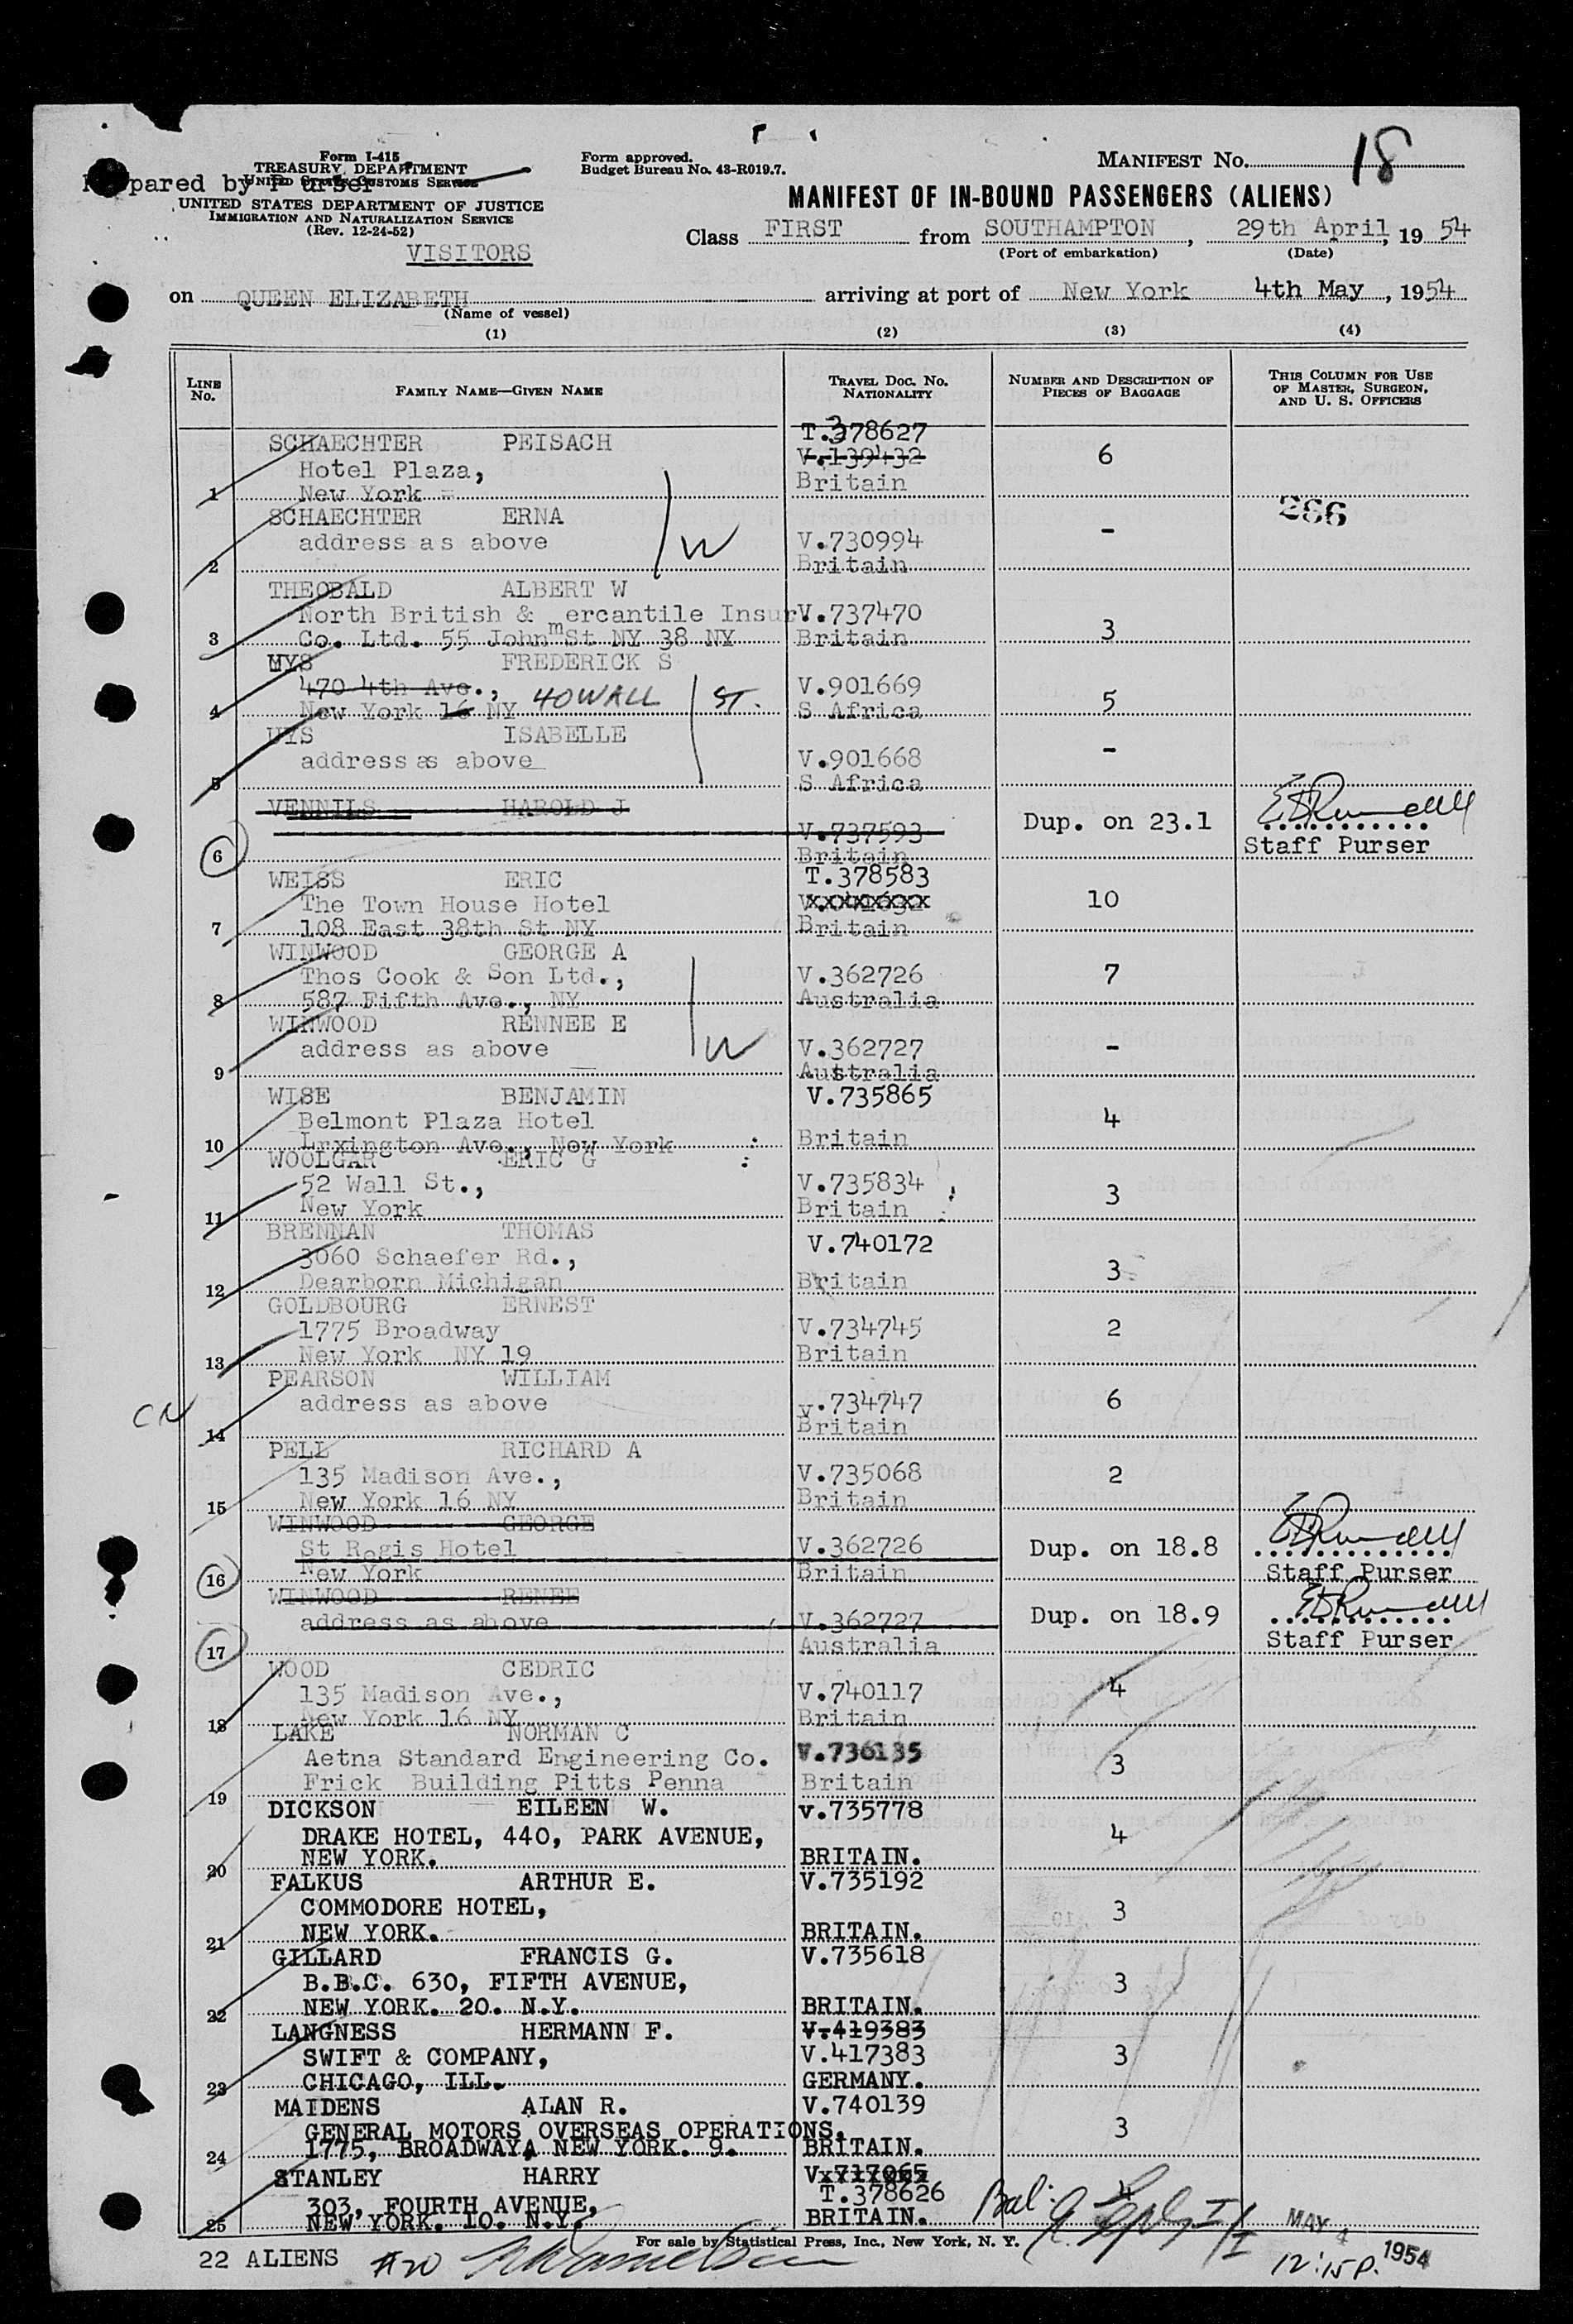 Form I-415
TREASURY DEPARTMENT
UNITED STATES CUSTOMS SERVICE
Prepared by Purser
UNITED STATES DEPARTMENT OF JUSTICE
IMMIGRATION AND NATURALIZATION SERVICE
(Rev. 12-24-52)
VISITORS
Form approved.
Budget Bureau No. 43-R019.7.
MANIFEST No. 18
MANIFEST OF IN-BOUND PASSENGERS (ALIENS)
Class FIRST from SOUTHAMPTON, 29th April, 1954
(Port of embarkation) (Date)
on QUEEN ELIZABETH arriving at port of New York 4th May, 1954
(Name of vessel)
(1) (2) (3) (4)
LINE No. FAMILY NAME—GIVEN NAME TRAVEL DOC. No. NATIONALITY NUMBER AND DESCRIPTION OF PIECES OF BAGGAGE THIS COLUMN FOR USE OF MASTER, SURGEON, AND U. S. OFFICERS
SCHAECHTER PEISACH T.378627
Hotel Plaza, V.139432 6
1 New York Britain
286
SCHAECHTER ERNA
address as above W V.730994 -
2 Britain
THEOBALD ALBERT W
North British & mercantile Insur V.737470
3 Co. Ltd. 55 John St NY 38 NY Britain 3
UYS FREDERICK S
470 4th Ave., 40 WALL ST. V.901669
4 New York 16 NY S Africa 5
UYS ISABELLE
address as above V.901668 -
5 S Africa
VENNILS HAROLD J
V.737593 Dup. on 23.1
6 Britain Staff Purser
WEISS ERIC T.378583
The Town House Hotel 10
7 108 East 38th St NY Britain
WINWOOD GEORGE A
Thos Cook & Son Ltd., V.362726 7
8 587 Fifth Ave., NY Australia
WINWOOD RENNEE E
address as above W V.362727 -
9 Australia
WISE BENJAMIN V.735865
Belmont Plaza Hotel 4
10 Lrxington Ave., New York Britain
WOOLGAR ERIC G
52 Wall St., V.735834 3
11 New York Britain
BRENNAN THOMAS V.740172
3060 Schaefer Rd., 3
12 Dearborn Michigan Britain
GOLDBOURG ERNEST
1775 Broadway V.734745 2
13 New York NY 19 Britain
PEARSON WILLIAM
address as above V.734747 6
CN
14 Britain
PELL RICHARD A
135 Madison Ave., V.735068 2
15 New York 16 NY Britain
WINWOOD GEORGE
St Regis Hotel V.362726 Dup. on 18.8
16 New York Britain Staff Purser
WINWOOD RENEE
address as above V.362727 Dup. on 18.9
17 Australia Staff Purser
WOOD CEDRIC
135 Madison Ave., V.740117 4
18 New York 16 NY Britain
LAKE NORMAN C
Aetna Standard Engineering Co. V.736135 3
19 Frick Building Pitts Penna Britain
DICKSON EILEEN W. V.735778
DRAKE HOTEL, 440, PARK AVENUE, 4
20 NEW YORK. BRITAIN.
FALKUS ARTHUR E. V.735192
COMMODORE HOTEL, 3
21 NEW YORK. BRITAIN.
GILLARD FRANCIS G. V.735618
B.B.C. 630, FIFTH AVENUE, 3
22 NEW YORK. 20. N.Y. BRITAIN.
LANGNESS HERMANN F. V.419383
SWIFT & COMPANY, V.417383 3
23 CHICAGO, ILL. GERMANY.
MAIDENS ALAN R. V.740139
GENERAL MOTORS OVERSEAS OPERATIONS. 3
24 1775, BROADWAY, NEW YORK. 9. BRITAIN.
STANLEY HARRY V.717065
303, FOURTH AVENUE, T.378626 4
25 NEW YORK. 10. N.Y. BRITAIN.
Bal:
For sale by Statistical Press, Inc., New York, N. Y.
22 ALIENS #20
MAY 4 1954
12:15 P.